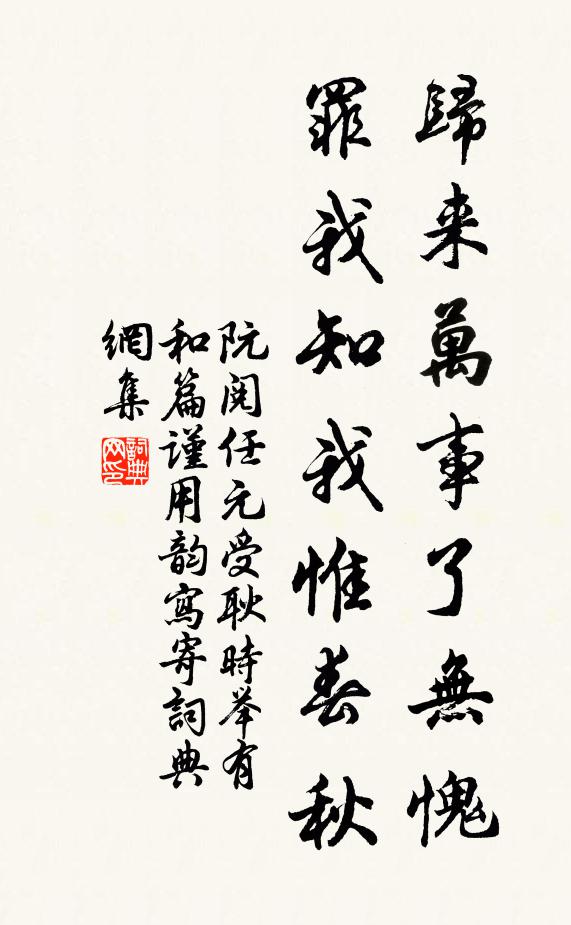 歸来萬事了無愧
罪我知我惟春秋
阮閱任元受耿時举有
和篇谨用韵寫寄詞典
網集
詞典网印